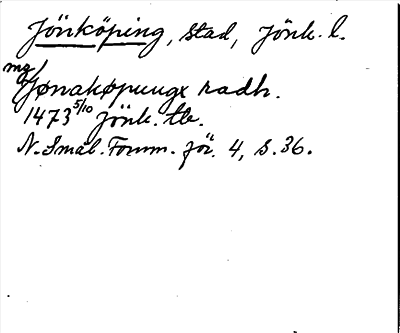 Jönköping, stad, Jönk. l.
mg
Jønakøpungx radh.
1473 5/10 Jönk. tb.
N. Smål. Fornm. för. 4, s. 36.